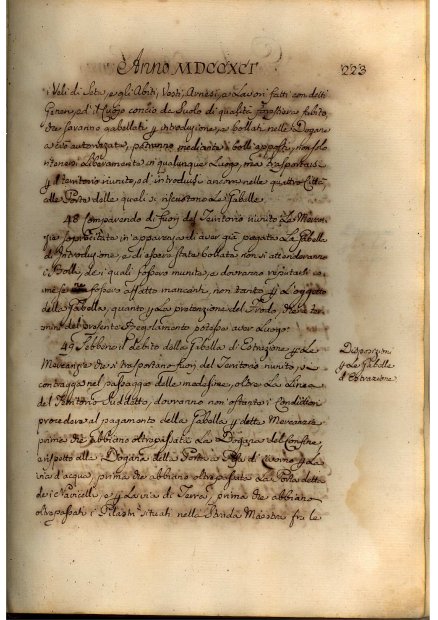 Anno MDCCXCI
223
i Veli di Seta, e gli Abiti, Vesti, Arnesi, e Lavori fatti con detti
Generi, ed il Cuojo concio da Suolo di qualità forestiera subito
che saranno gabellati per introduzione, e bollati nelle Dogane
a ciò autorizzate, potranno mediante i bolli apposti, non solo
ritenersi liberamente in qualunque Luogo, ma trasportarsi
per il territorio riunito, ed introdursi ancora nelle quattro Città,
alle Porte delle quali si riscuotono le Gabelle.
48 Comparendo di fuori del Territorio riunito le Mercan-
zie sopracitate in apparenza di aver già pagata la Gabella
d'Introduzione, e di essere state bollate non si attenderanno
i Bolli, de i quali fossero munite, e dovranno reputarsi co-
me se fossero affatto mancanti, non tanto per l'oggetto
della Gabella, quanto per la pretenzione del Frodo, che a ter-
mini del presente Regolamento potesse aver luogo.
49 Sebbene il debito della Gabella d'Estrazione per le
Mercanzie che si trasportano fuori del Territorio riunito, si
contragga nel passaggio delle medesime, oltre la Linea
del Territorio suddetto, dovranno non ostante i Conduttori
procedere al pagamento della Gabella per dette Mercanzie
prima che abbiano oltrapassata la Dogana del Confine
e rispetto alle Dogane della Porta a Pisa di Livorno per la
via d'acqua, prima che abbiano oltrepassata la Porta detta
de i Navicelli, e per la via di Terra, prima che abbiano
oltrepassati i Pilastri situati nella Strada Maestra fra le
Disposizioni
per le Gabelle
d'Estrazione